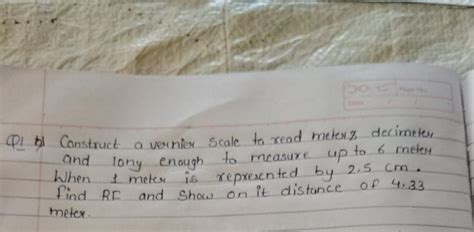 Q1 b) Construct a vernier scale to read meter & decimeter
and long enough to measure up to 6 meter
When 1 meter is represented by 2.5 cm.
Find RF and show on it distance of 4.33
meter.